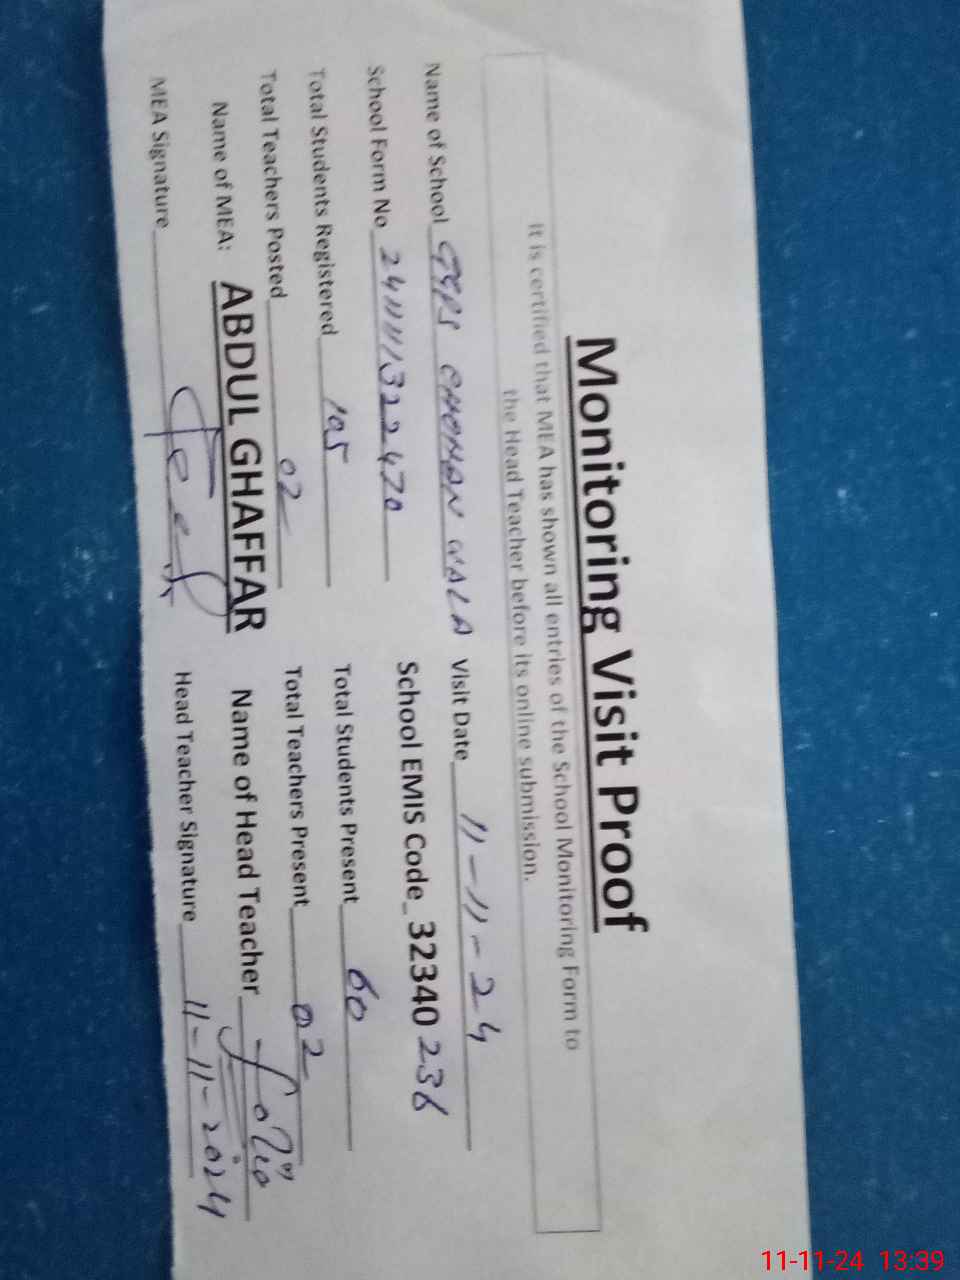 Monitoring Visit Proof
It is certified that MEA has shown all entries of the School Monitoring Form to
the Head Teacher before its online submission.
Name of School GGPS CHOHAN WALA Visit Date 11-11-24
School Form No 241111322470 School EMIS Code_32340 236
Total Students Registered 105 Total Students Present 60
Total Teachers Posted 02 Total Teachers Present 02
Name of MEA: ABDUL GHAFFAR Name of Head Teacher
MEA Signature Head Teacher Signature 11-11-2024
11-11-24 13:39